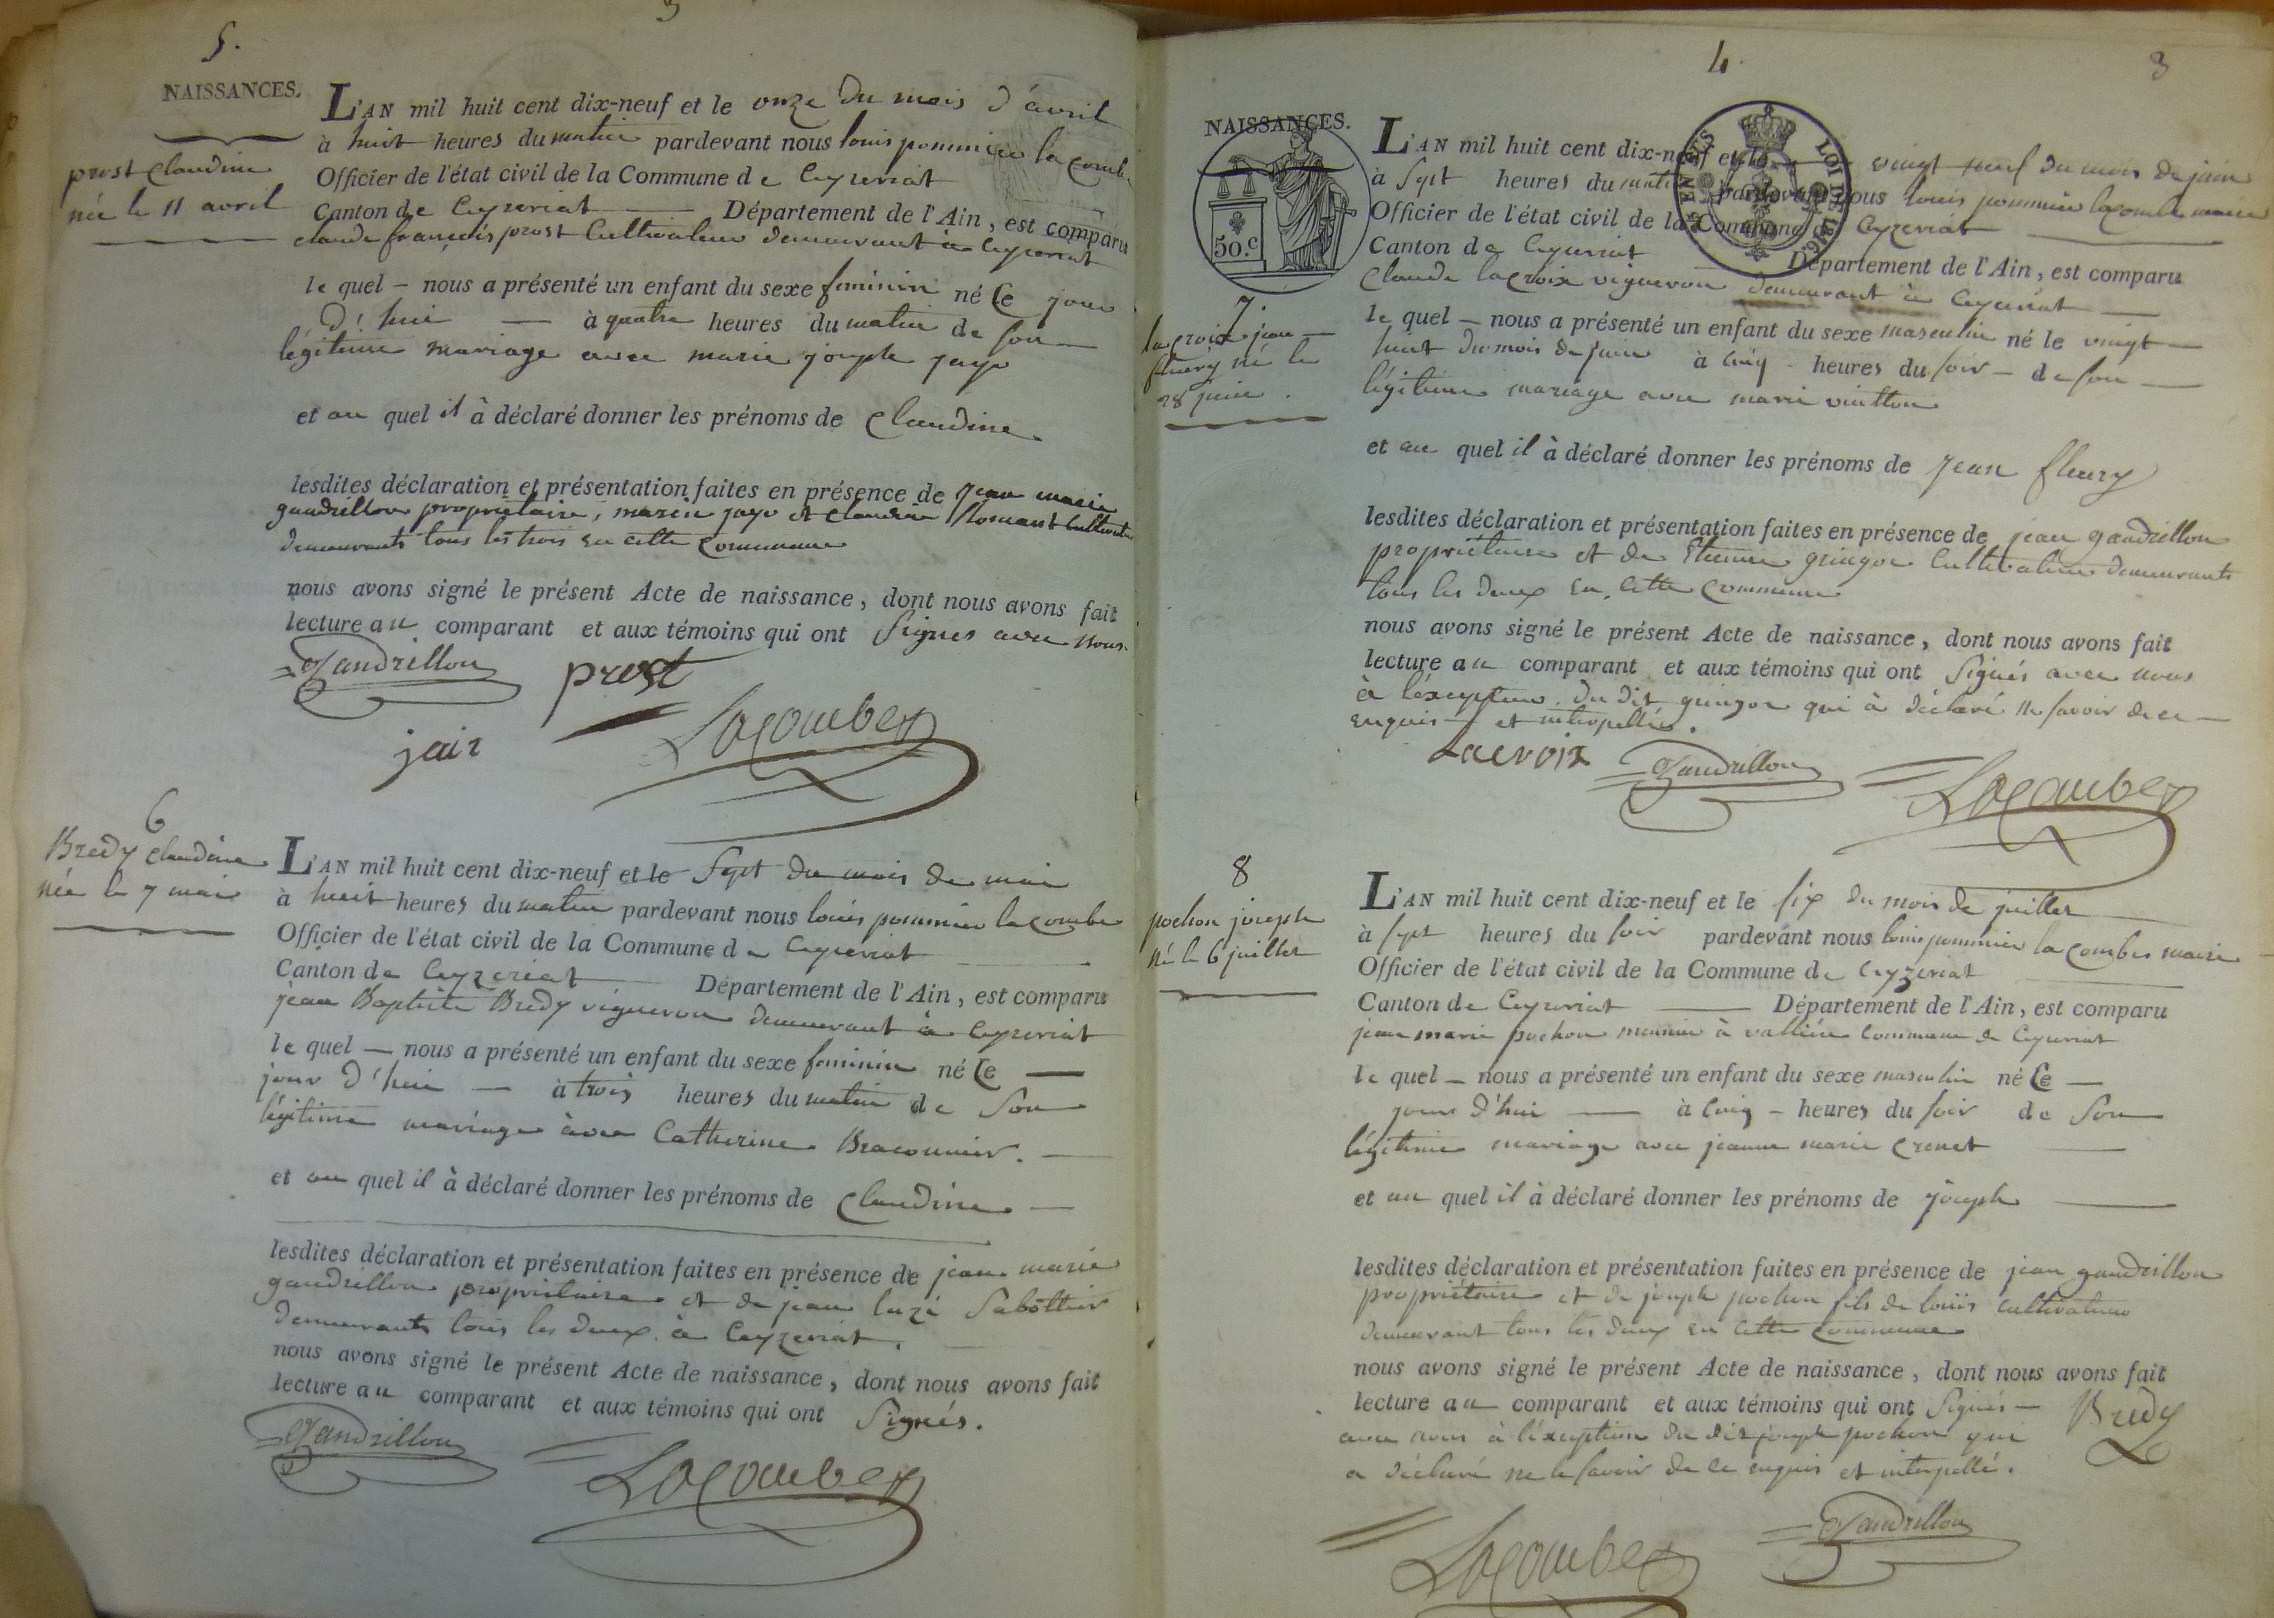 3
5.
NAISSANCES.
prost Claudine
née le 11 avril
L'AN mil huit cent dix-neuf et le onze du mois d'avril
à huit heures du matin pardevant nous louis pommier lacombe
Officier de l'état civil de la Commune de Ceyzeriat
Canton de Ceyzeriat Département de l'Ain, est comparu
claude françois prost Cultivateur demeurant à Ceyzeriat
le quel — nous a présenté un enfant du sexe feminin né Ce jour
d'hui — à quatre heures du matin de son —
légitime mariage avec marie joseph jayr
et au quel il à déclaré donner les prénoms de Claudine.
lesdites déclaration et présentation faites en présence de jean marie
gaudrillon propriétaire, marie jayr et claude
demeurants tous les trois en cette commune
nous avons signé le présent Acte de naissance, dont nous avons fait
lecture au comparant et aux témoins qui ont Signés avec nous.
Gandrillon
prost
jair
Lacombe
6
Bredy Claudine
née le 7 mai
L'AN mil huit cent dix-neuf et le Sept du mois de mai
à huit heures du matin pardevant nous louis pommier lacombe
Officier de l'état civil de la Commune de Ceyzeriat
Canton de Ceyzeriat Département de l'Ain, est comparu
jean Baptiste Bredy vigneron demeurant à Ceyzeriat
le quel — nous a présenté un enfant du sexe feminin né Ce —
jour d'hui — à trois heures du matin de Son
légitime mariage avec Catherine Braconnier. —
et au quel il à déclaré donner les prénoms de Claudine —
lesdites déclaration et présentation faites en présence de jean marie
gaudrillon propriétaire et de jean luzi Sabottier
demeurants tous les deux à Ceyzeriat.
nous avons signé le présent Acte de naissance, dont nous avons fait
lecture au comparant et aux témoins qui ont Signés.
Gandrillon
Lacombe
4.
3
NAISSANCES.
50.c
LOI DE
7.
lacroix jean
fleury né le
28 juin.
L'AN mil huit cent dix-neuf et le vingt neuf du mois de juin
à Sept heures du matin pardevant nous louis pommier lacombe maire
Officier de l'état civil de la Commune de Ceyzeriat
Canton de Ceyzeriat Département de l'Ain, est comparu
Claude lacroix vigneron demeurant à Ceyzeriat —
le quel — nous a présenté un enfant du sexe masculin né le vingt —
huit du mois de juin à Cinq - heures du soir — de son —
légitime mariage avec marie
et au quel il à déclaré donner les prénoms de Jean fleury
lesdites déclaration et présentation faites en présence de jean gaudrillon
propriétaire et de Etienne gringoz Cultivateur demeurants
tous les deux en Cette Commune
nous avons signé le présent Acte de naissance, dont nous avons fait
lecture au comparant et aux témoins qui ont Signés avec nous
à l'exception du dit gringoz qui à déclaré ne savoir de ce —
enquis et interpellé.
Lacroix
Gandrillon
Lacombe
8
pochon joseph
né le 6 juillet
L'AN mil huit cent dix-neuf et le six du mois de juillet
à sept heures du soir pardevant nous louis pommier lacombe maire
Officier de l'état civil de la Commune de Ceyzeriat
Canton de Ceyzeriat — Département de l'Ain, est comparu
jean marie pochon meunier à vallière Commune de Ceyzeriat
le quel — nous a présenté un enfant du sexe masculin né Ce —
jour d'hui — à Cinq — heures du soir de Son
légitime mariage avec jeanne marie —
et au quel il à déclaré donner les prénoms de joseph —
lesdites déclaration et présentation faites en présence de jean gaudrillon
propriétaire et de joseph pochon fils de louis cultivateur
demeurant tous les deux en Cette Commune
nous avons signé le présent Acte de naissance, dont nous avons fait
lecture au comparant et aux témoins qui ont Signés —
avec nous à l'exception du dit joseph pochon qui
a déclaré ne le savoir de ce enquis et interpellé.
Bredy
Lacombe
Gandrillon